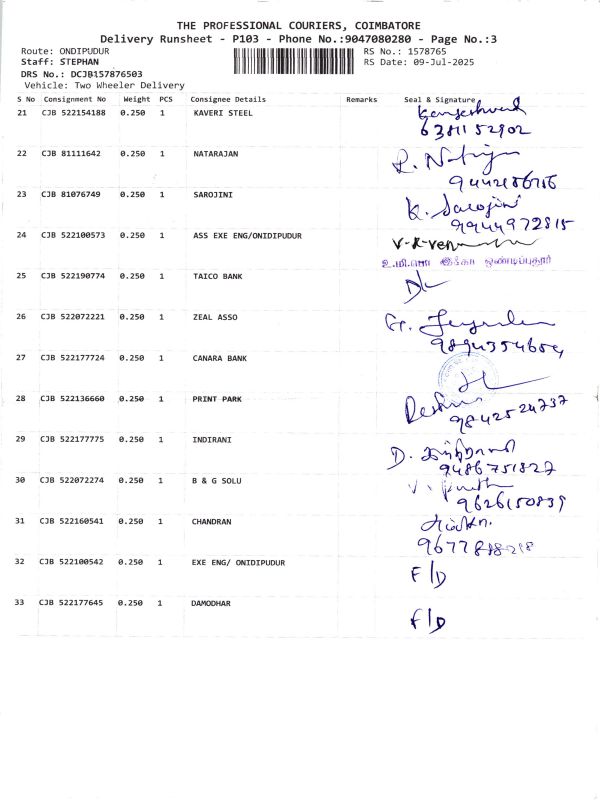 THE PROFESSIONAL COURIERS, COIMBATORE
Delivery Runsheet - P103 - Phone No.:9047080280 - Page No.:3
Route: ONDIPUDUR
RS No.: 1578765
Staff: STEPHAN
RS Date: 09-Jul-2025
DRS No.: DCJB157876503
Vehicle: Two Wheeler Delivery
S No Consignment No Weight PCS Consignee Details Remarks Seal & Signature
21 CJB 522154188 0.250 1 KAVERI STEEL
6381152902
22 CJB 81111642 0.250 1 NATARAJAN
23 CJB 81076749 0.250 1 SAROJINI K. Sarojini
9944972815
24 CJB 522100573 0.250 1 ASS EXE ENG/ONDIPUDUR
25 CJB 522190774 0.250 1 TAICO BANK
26 CJB 522072221 0.250 1 ZEAL ASSO
9894354654
27 CJB 522177724 0.250 1 CANARA BANK
28 CJB 522136660 0.250 1 PRINT PARK
9842524737
29 CJB 522177775 0.250 1 INDIRANI D. இந்திராணி
9486751827
30 CJB 522072274 0.250 1 B & G SOLU
9626150839
31 CJB 522160541 0.250 1 CHANDRAN
32 CJB 522100542 0.250 1 EXE ENG/ ONIDIPUDUR F/D
33 CJB 522177645 0.250 1 DAMODHAR F/D